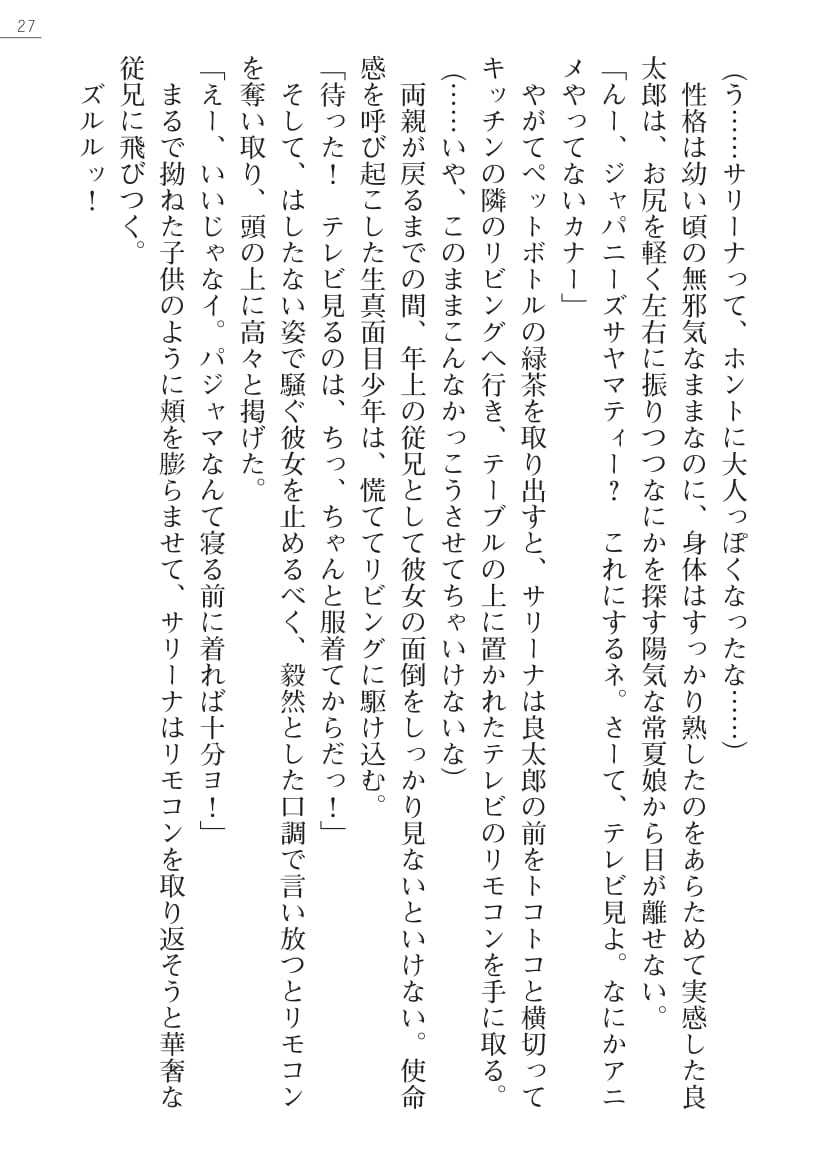 27
(う……サリーナって、ホントに大人っぽくなったな……)
　性格は幼い頃の無邪気なままなのに、身体はすっかり熟したのをあらためて実感した良
太郎は、お尻を軽く左右に振りつつなにかを探す陽気な常夏娘から目が離せない。
「んー、ジャパニーズサヤマティー？　これにするネ。さーて、テレビ見よ。なにかアニ
メやってないカナー」
　やがてペットボトルの緑茶を取り出すと、サリーナは良太郎の前をトコトコと横切って
キッチンの隣のリビングへ行き、テーブルの上に置かれたテレビのリモコンを手に取る。
(……いや、このままこんなかっこうさせてちゃいけないな)
　両親が戻るまでの間、年上の従兄として彼女の面倒をしっかり見ないといけない。使命
感を呼び起こした生真面目少年は、慌ててリビングに駆け込む。
「待った！　テレビ見るのは、ちっ、ちゃんと服着てからだっ！」
　そして、はしたない姿で騒ぐ彼女を止めるべく、毅然とした口調で言い放つとリモコン
を奪い取り、頭の上に高々と掲げた。
「えー、いいじゃなイ。パジャマなんて寝る前に着れば十分ヨ！」
　まるで拗ねた子供のように頬を膨らませて、サリーナはリモコンを取り返そうと華奢な
従兄に飛びつく。
　ズルルッ！